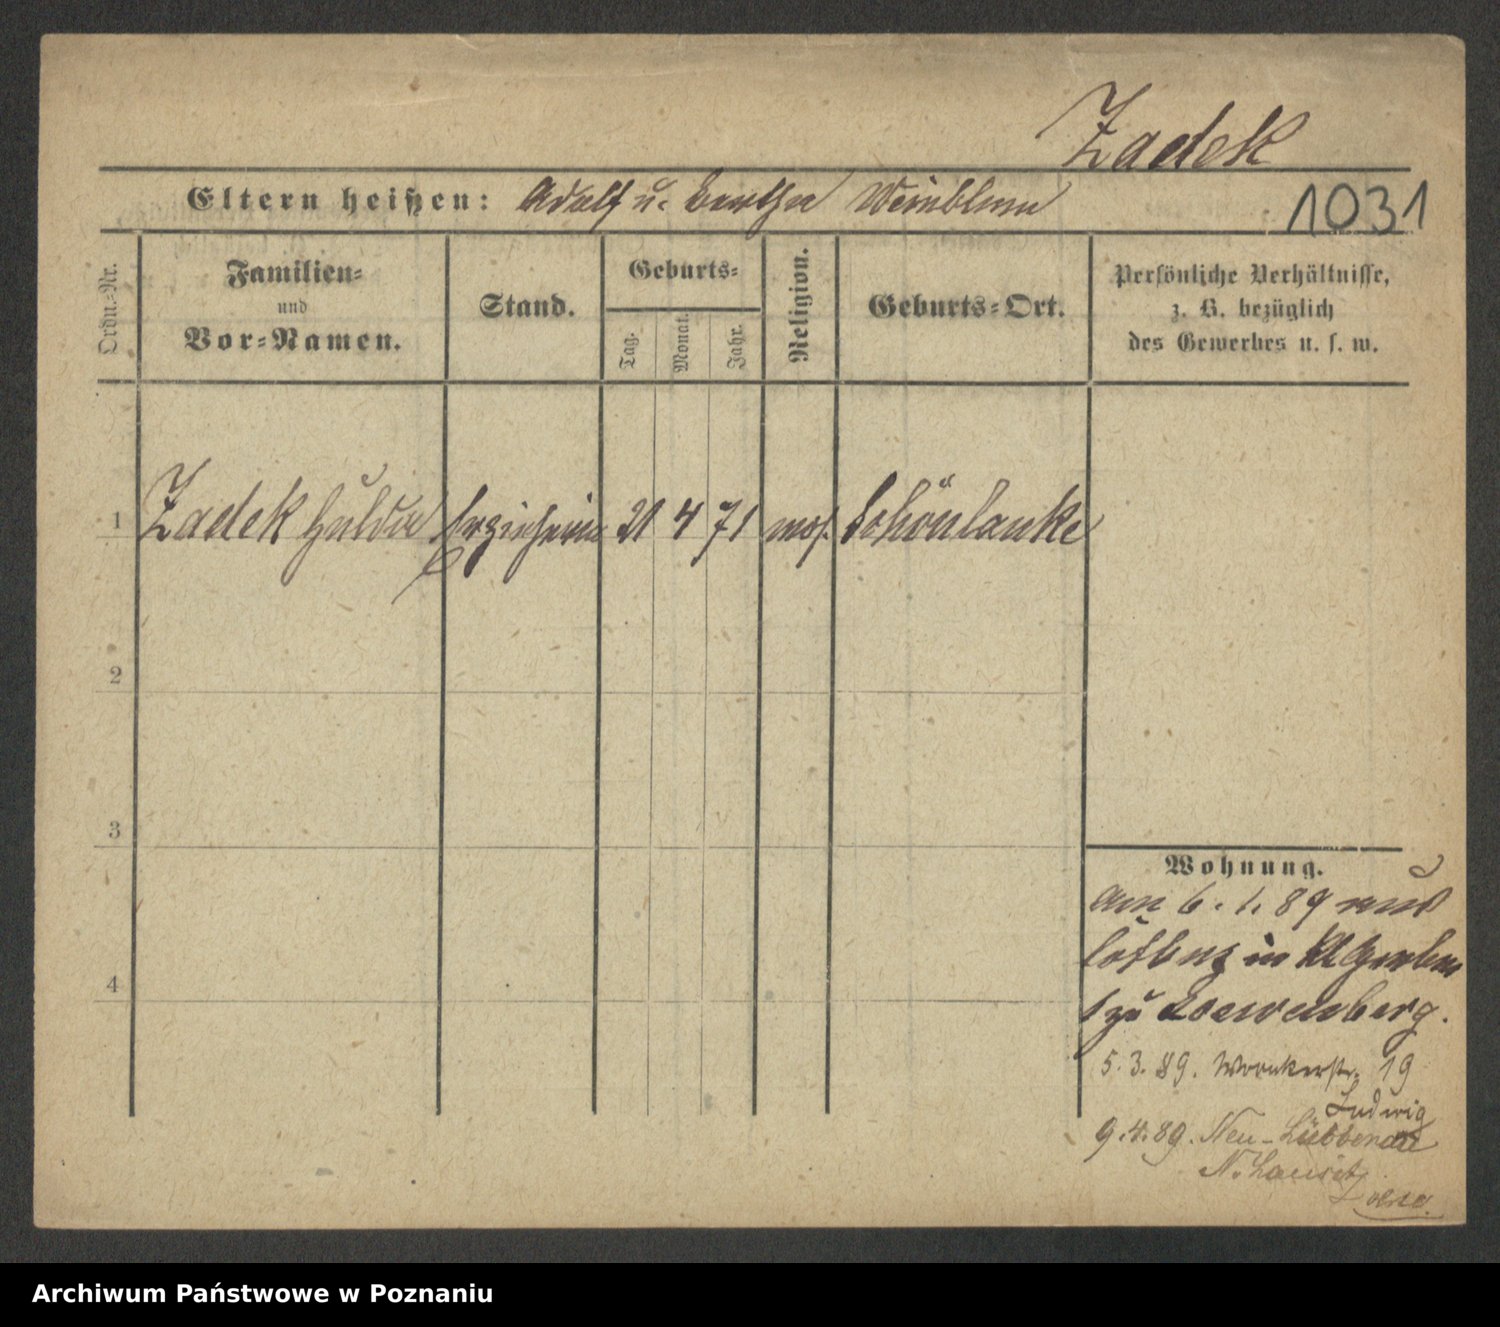 Zadek
Eltern heißen: Adolf u. Bertha Weinblum
1031
Ordn.-Nr.
Familien-
und
Vor-Namen.
Stand.
Geburts-
Tag.
Monat.
Jahr.
Religion.
Geburts-Ort.
Persönliche Verhältnisse,
z. B. bezüglich
des Gewerbes u. s. w.
1 Zadek Hulda Erzieherin 21 4 71 mos. Schönlanke
2
3
4
Wohnung.
am 6. 1. 89 aus
in Kl Gerber
zu Loewenberg.
5. 3. 89. Wronkerstr. 19
Ludwig
9. 4. 89. Neu-Lübbenau
N. Lausitz
Archiwum Państwowe w Poznaniu